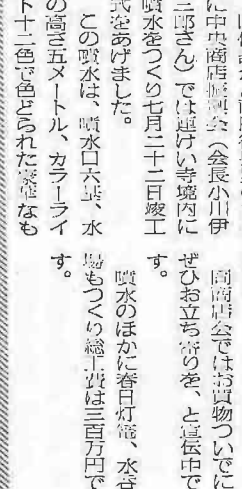 に中央商店振興会（会長小川伊
三郎さん）では運けい寺境内に
噴水をつくり七月二十二日竣工
式をあげました。
この噴水は、噴水口六基、水
の高さ五メートル、カラーライ
ト十二色で色どられた豪華なも
同商店会ではお買物ついでに
ぜひお立ち寄りを、と宣伝中で
す。
噴水のほかに春日灯篭、水呑
場もつくり総工費は三百万円で
す。